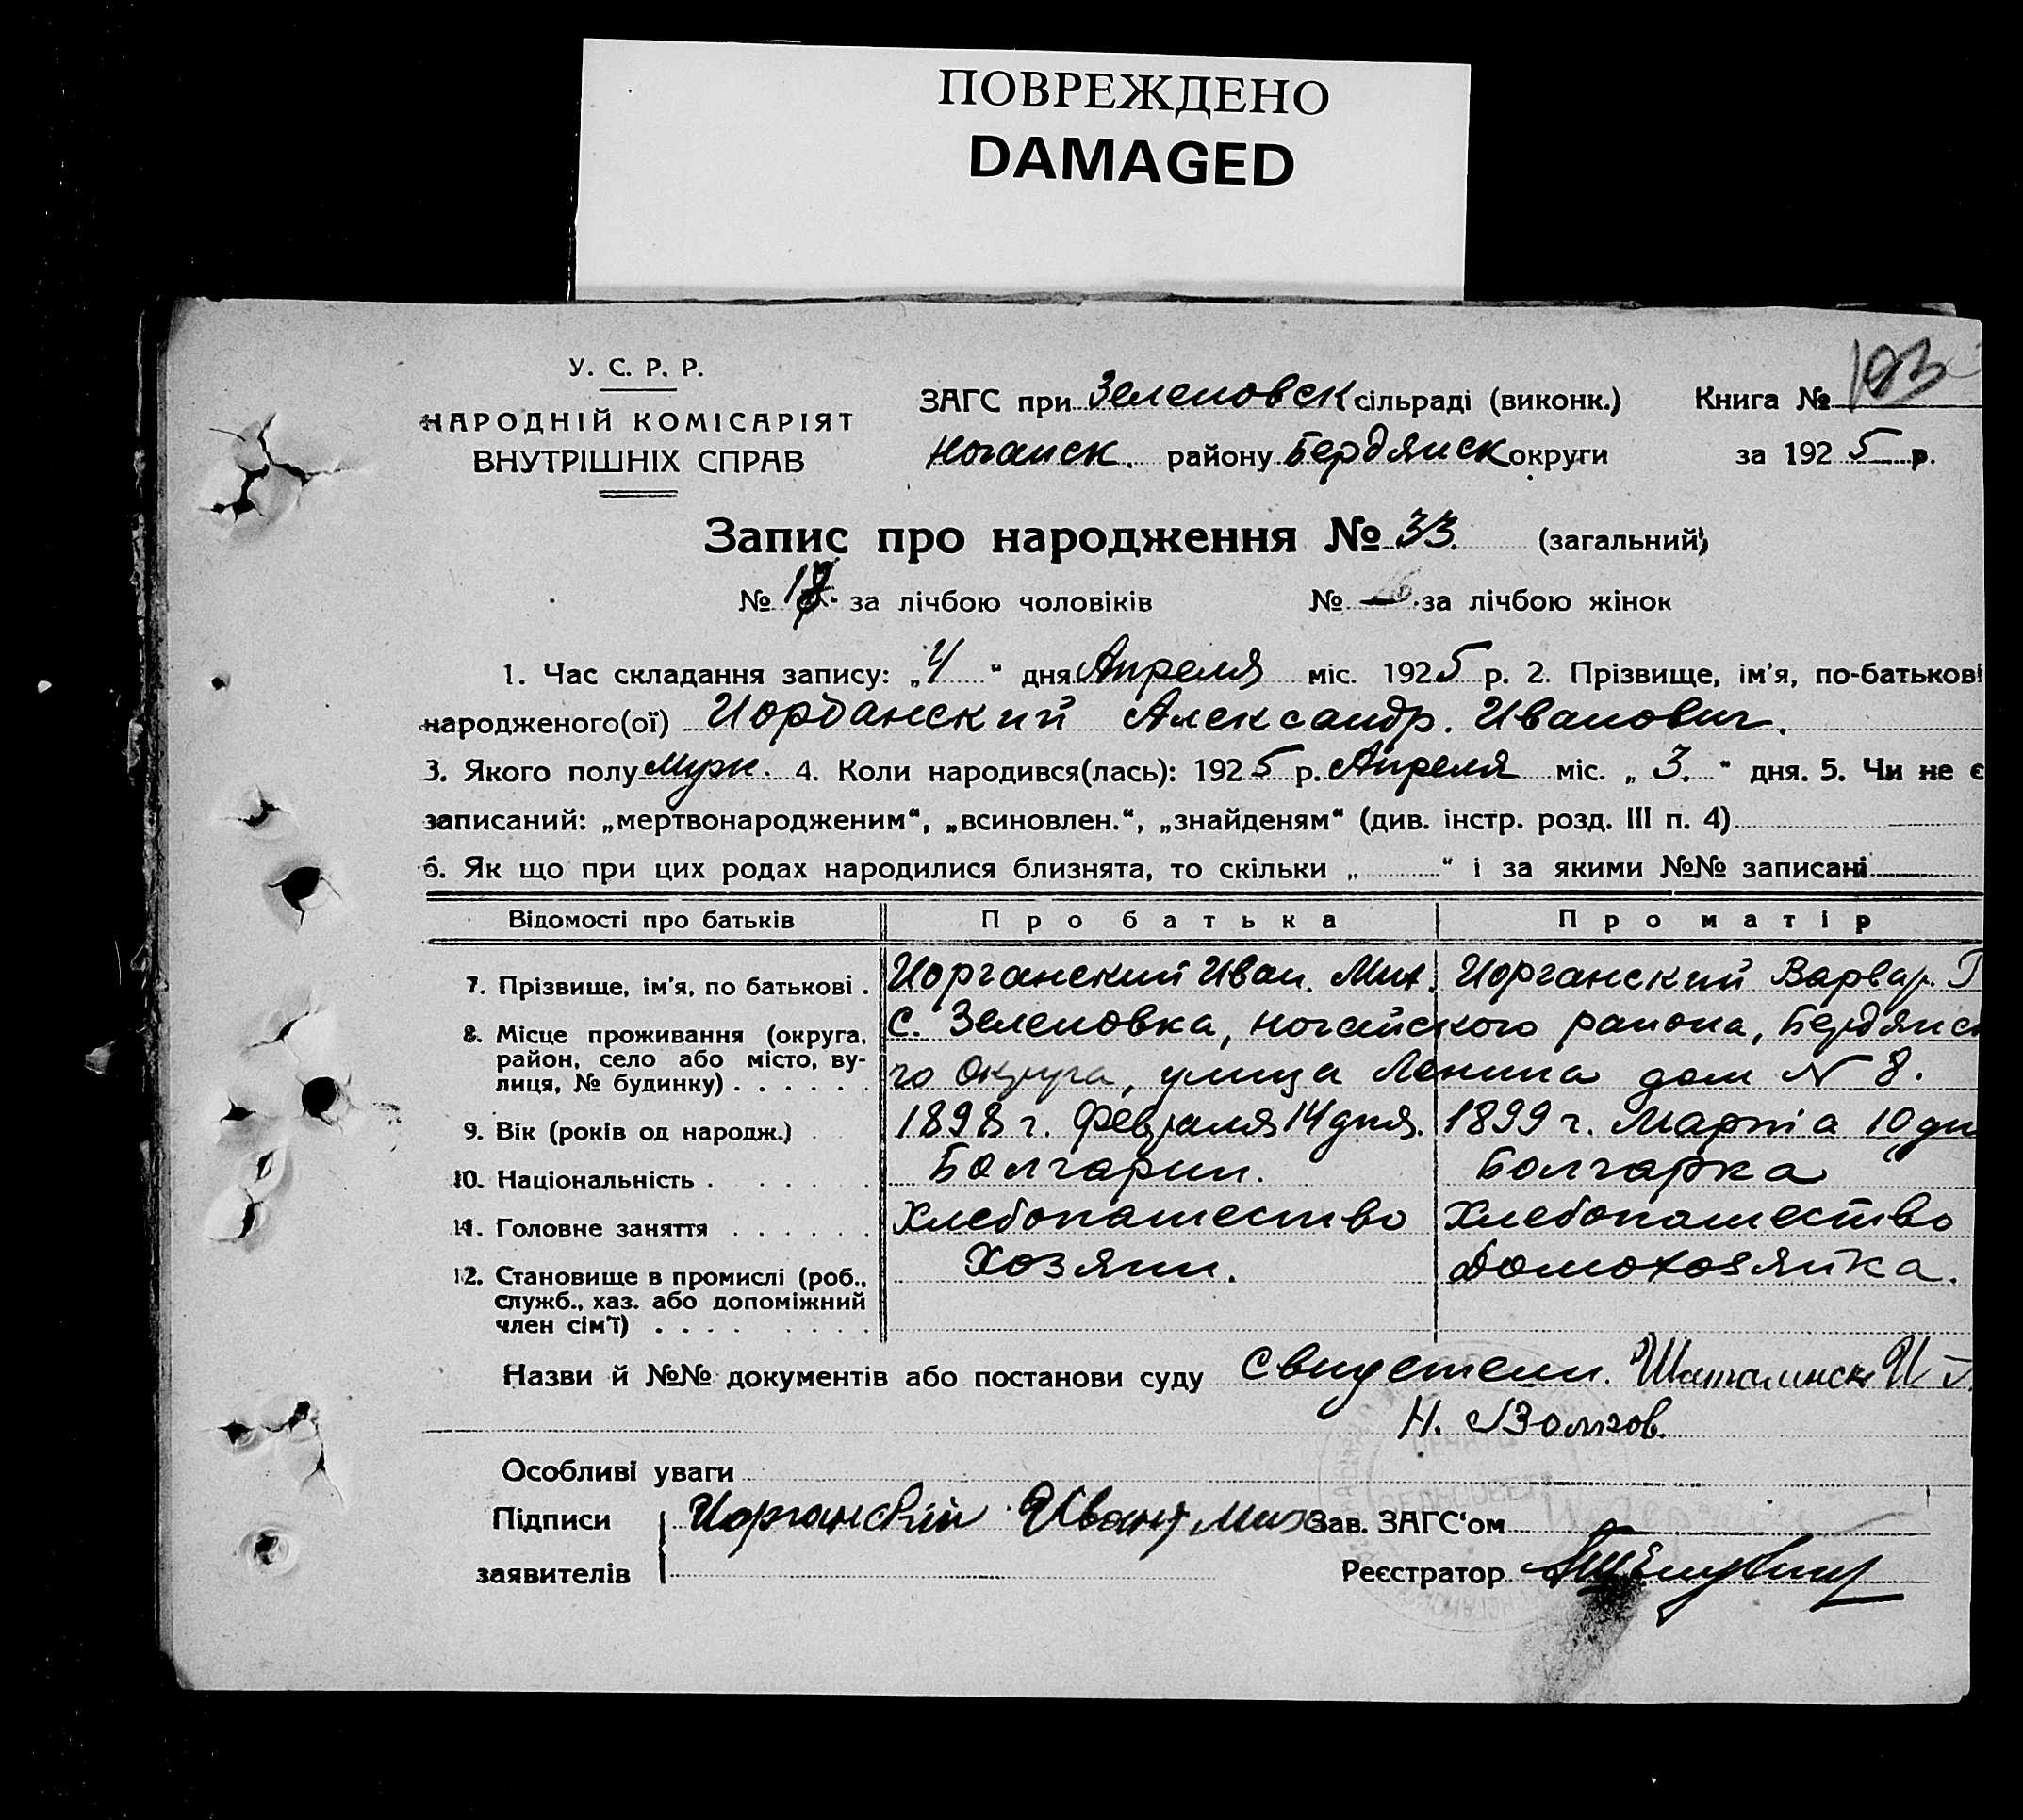 ПОВРЕЖДЕНО
DAMAGED
У. С. Р. Р.
НАРОДНІЙ КОМІСАРІЯТ
ВНУТРІШНІХ СПРАВ
ЗАГС при Зеленовск сільраді (виконк.) Книга № 103
Ногайск. району Бердянск округи за 1925 р.
Запис про народження № 33. (загальний)
№ за лічбою чоловіків № за лічбою жінок
1. Час складання запису: „4“ дня Апреля міс. 1925 р. 2. Прізвище, ім'я, по-батькові
народженого(ої) Иорданский Александр. Иванович.
3. Якого полу Муж. 4. Коли народився(лась): 1925 р. Апреля міс. „3.“ дня. 5. Чи не є
записаний: „мертвонародженим“, „всиновлен.“, „знайденям“ (див. інстр. розд. III п. 4)
6. Як що при цих родах народилися близнята, то скільки „ “ і за якими №№ записані
Відомості про батьків Про батька Про матір
7. Прізвище, ім'я, по батькові . Иорганский Иван. Мих. Иорганский Варвар. Г
8. Місце проживання (округа, район, село або місто, вулиця, № будинку) . . . . . . с. Зеленовка, Ногайского района, Бердянск
го округа, улица Ленина дом N 8.
9. Вік (років од народж.) 1898 г. Февраля 14 дня. 1899 г. Марта 10 дн
10. Національність . Болгарин. Болгарка
11. Головне заняття . . . . . . Хлебопашество Хлебопашество
12. Становище в промислі (роб., служб., хаз. або допоміжний член сім'ї) . . . . Хозяин. Домохозяйка.
Назви й №№ документів або постанови суду Свидетели. И
Н. Волков.
Особливі уваги
Підписи Иорганский Иван Мих Зав. ЗАГС'ом
заявителів Реєстратор